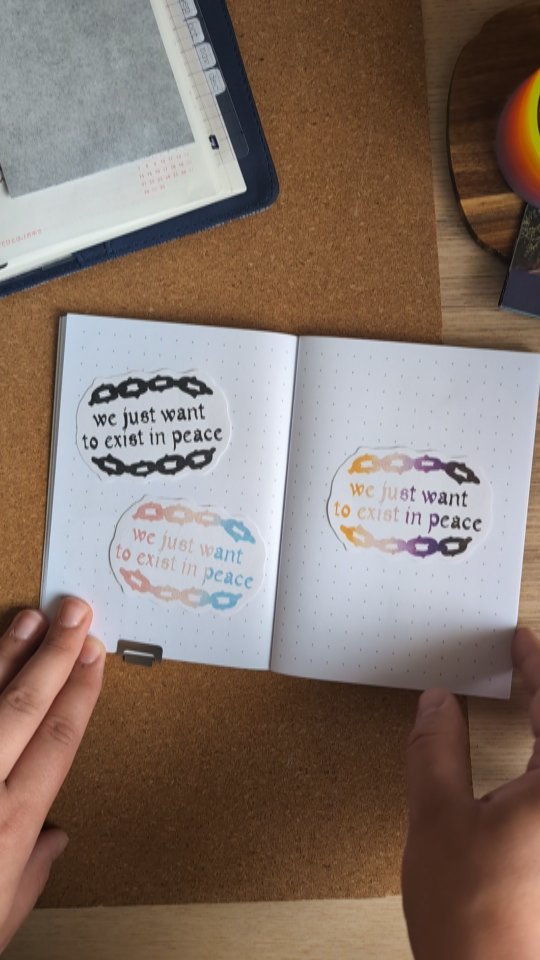 we just want
to exist in peace
we just want
to exist in peace
we just want
to exist in peace